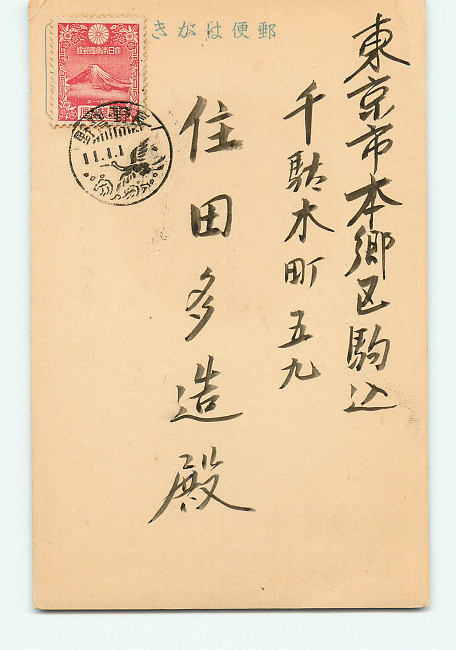 郵便はがき
東京市本郷区駒込
千駄木町五九
住田多造殿
大日本帝国郵便
長野
11.1.1